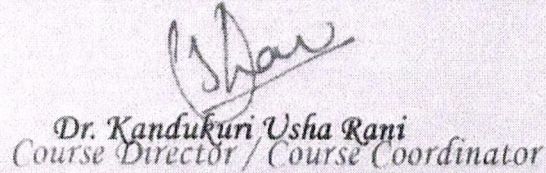 Usha
Dr. Kandukuri Usha Rani
Course Director / Course Coordinator